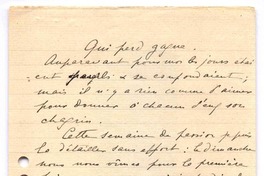 Qui perd gagne.
Auparavant pour moi les jours étai
ent pareils & se confondaient;
mais il n'y a rien comme l'aimer
pour donner à chacun d'eux son
chagrin.
Cette semaine de passion je puis
la détailler sans effort: le dimanche
nous nous vîmes pour la première